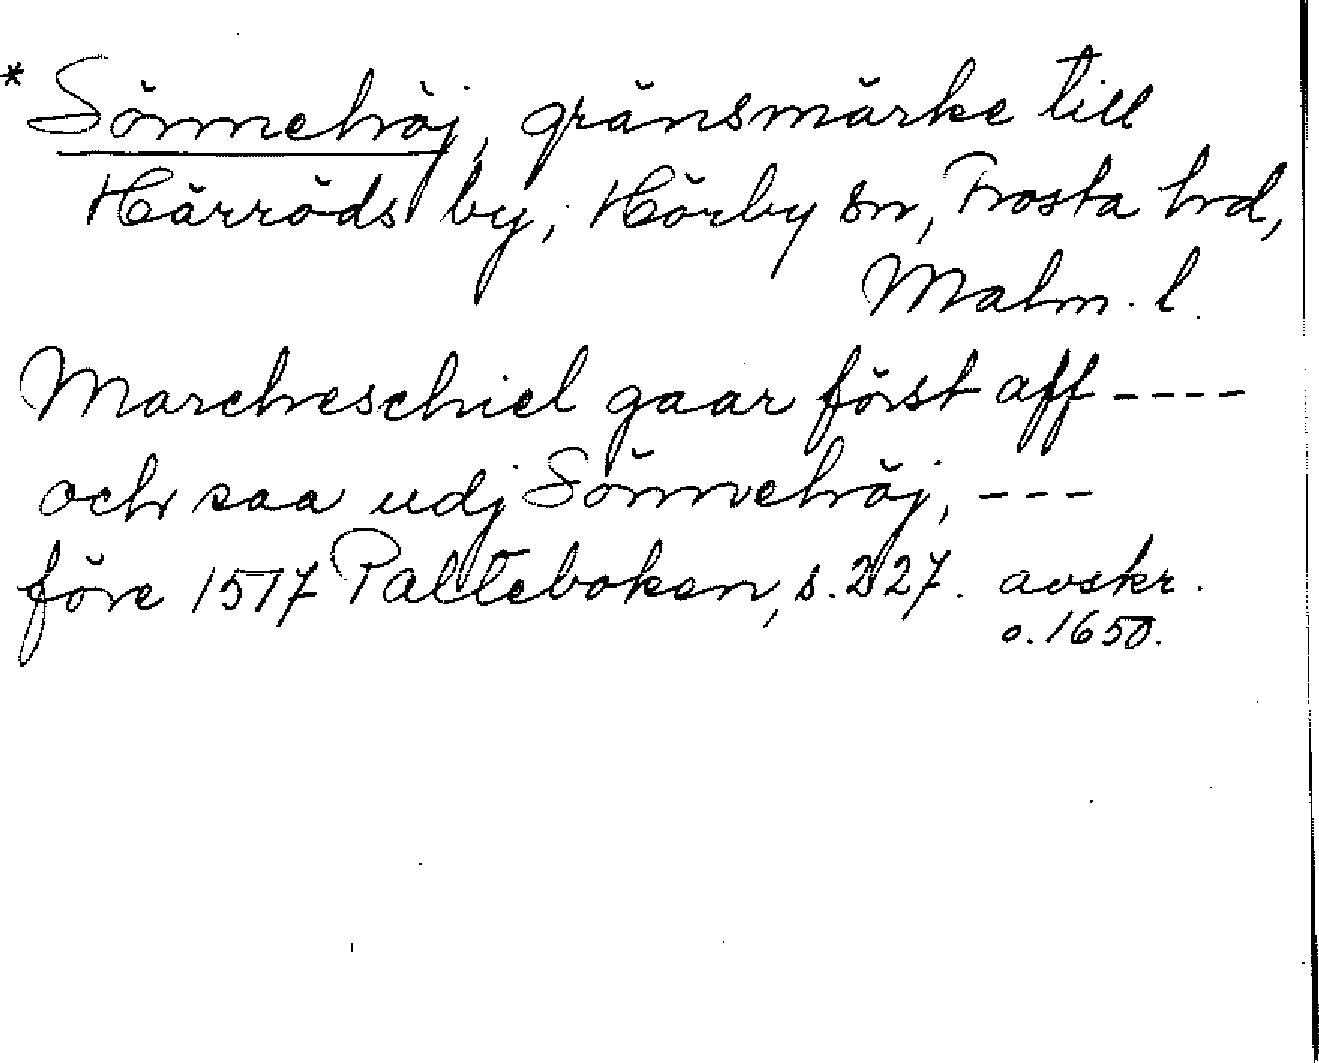 * Sönnehöj, gränsmärke till
Härröds by, Hörby sn, Frosta hd,
Malm. l.
Marcheschiel gaar först aff ----
och saa udj Sönnehöj, ---
före 1517 Palteboken, s. 227. avskr.
o. 1650.